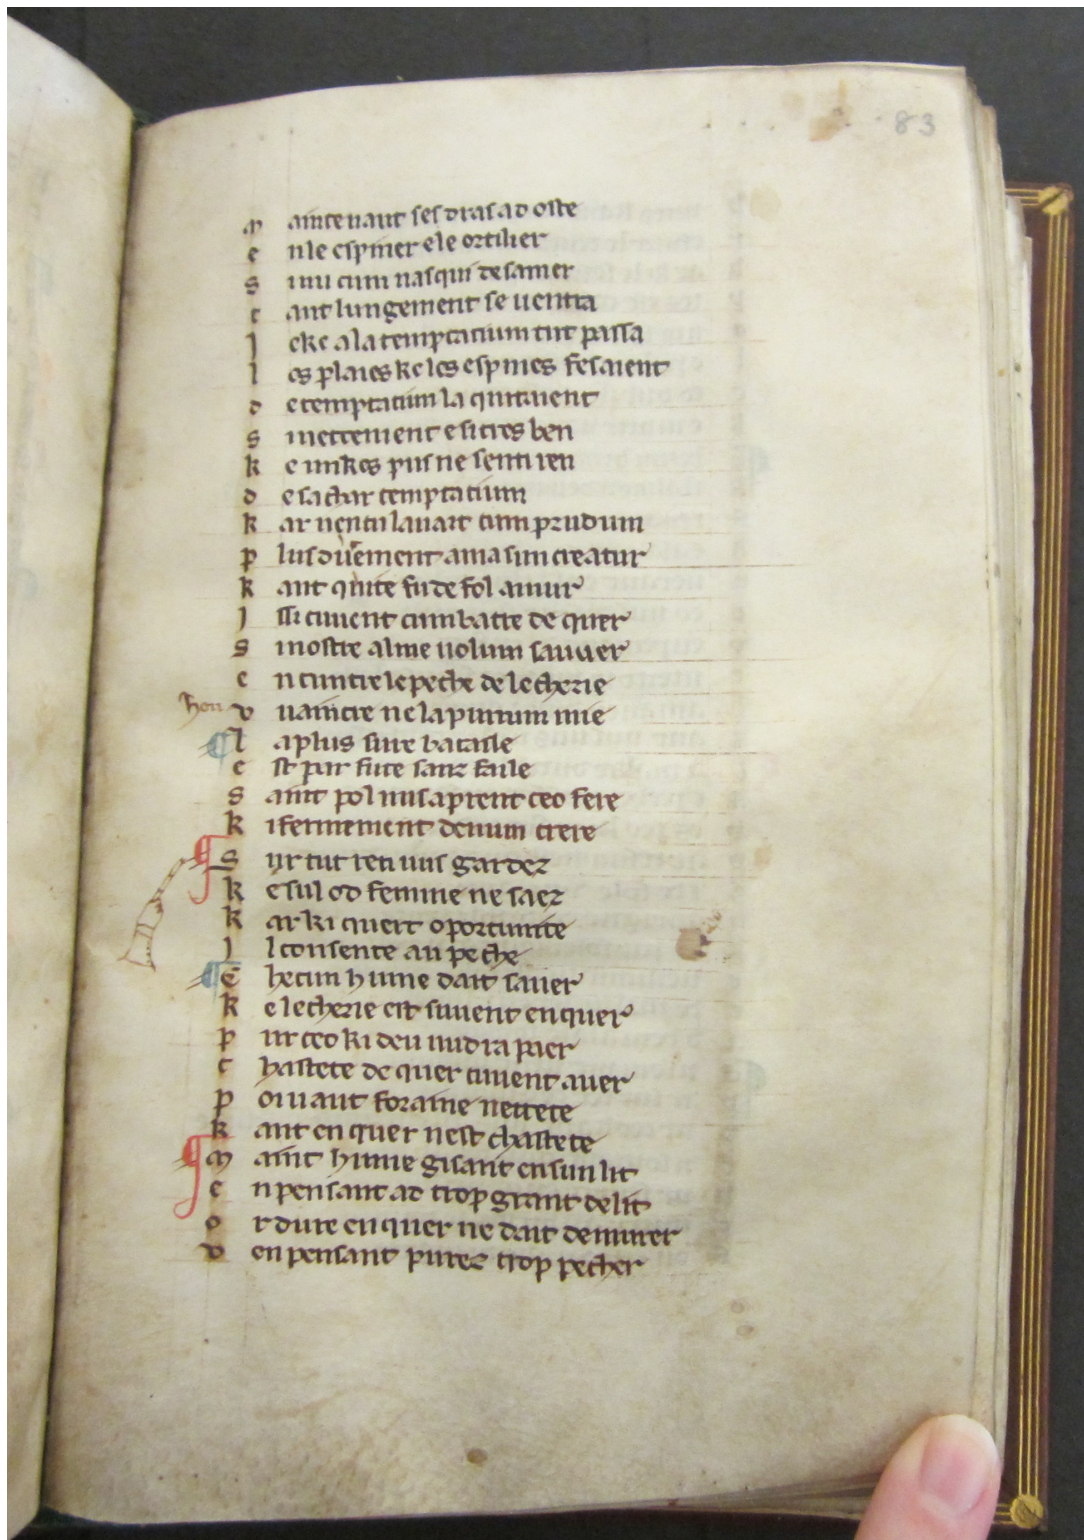 83
Maintenant ses dras ad oste
En le espiner e le ortilier
Si nu cum nasqui de sa mer
Tant lungement se uentra
Jeke a la temptatium tut passa
Les plaies ke les espines fesaient
De temptatium la quitaient
Si nettement e si tres ben
Ke unkes pus ne senti ren
De sa char temptatium
Kar uencu lauait cum prudum
Plus duement ama sun creatur
Kant quite fu de fol amur
Issi cuuent cumbatre de quer
Si nostre alme uolum sauuer
En cuntre le peche de lecherie
hou
V uaincre ne la purrum mie
La plus sure bataile
Est pur fuite sanz faile
Saint pol nus aprent ceo fere
Ki fermement deuum crere
Sur tut ren uus gardez
Ke sul od femme ne saez
Kar ki quert oportunite
Il consente au peche
Checun hume dait sauer
Ke lecherie est suuent en quer
Pur ceo ki deu uudra paer
Chastete de quer cuuent auer
Poi uaut foraine nettete
Kant en quer nest chastete
Maint hume gisant en sun lit
En pensant ad trop grant delit
Ordure en quer ne dait demurer
V en pensant purez trop pecher